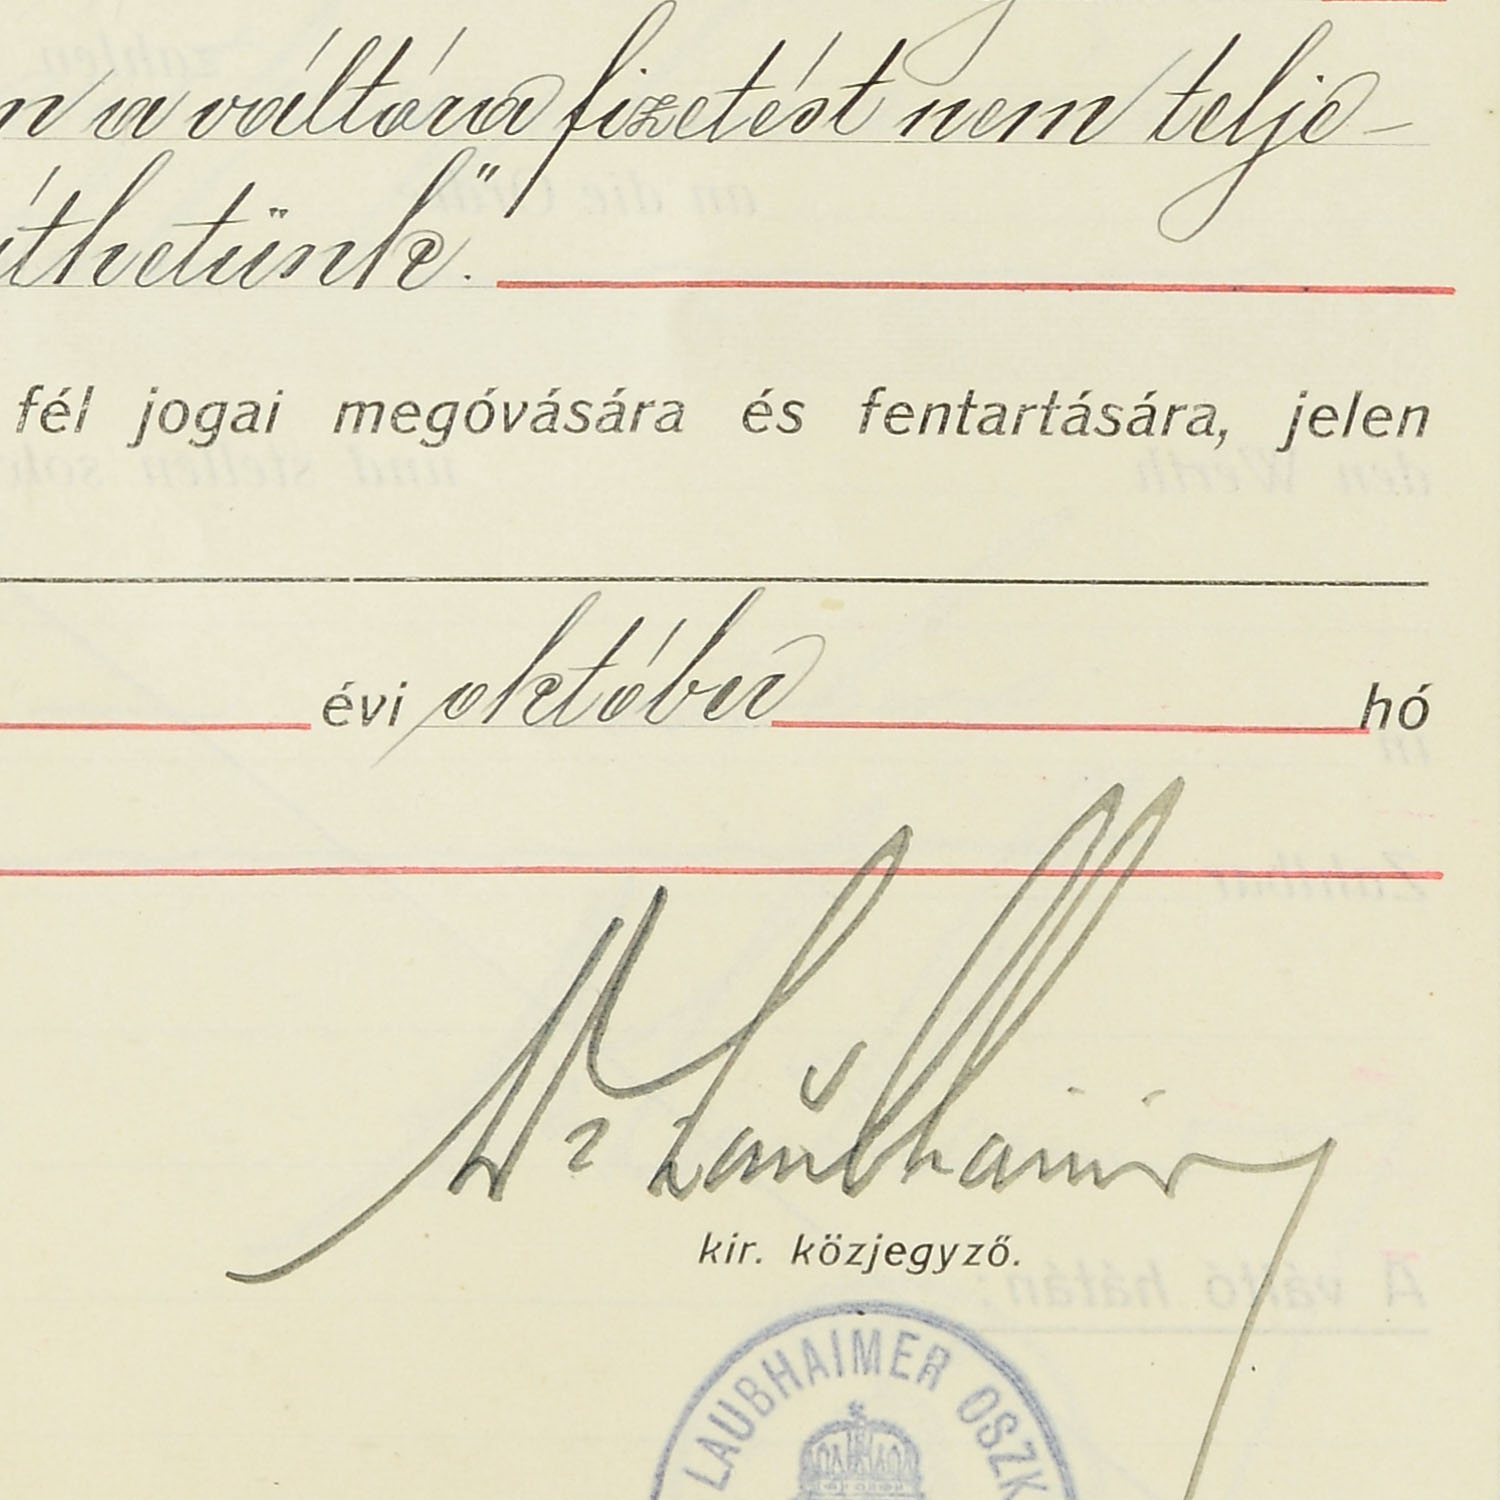 a váltóra fizetést nem telje-
íthetünk".
fél jogai megóvására és fentartására, jelen
évi október hó
Dr Laubhaimer
kir. közjegyző.
LAUBHAIMER OSZK